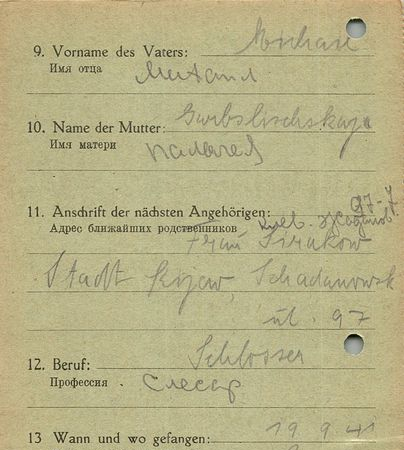 9. Vorname des Vaters: Michail
Имя отца Михаил
10. Name der Mutter:
Имя матери
11. Anschrift der nächsten Angehörigen: 97-7
Адрес ближайших родственников киев.
Frau Sirakow
Stadt Kijew, Schadanowsk
ul. 97
12. Beruf: Schlosser
Профессия Слесар
13 Wann und wo gefangen: 19 9 41